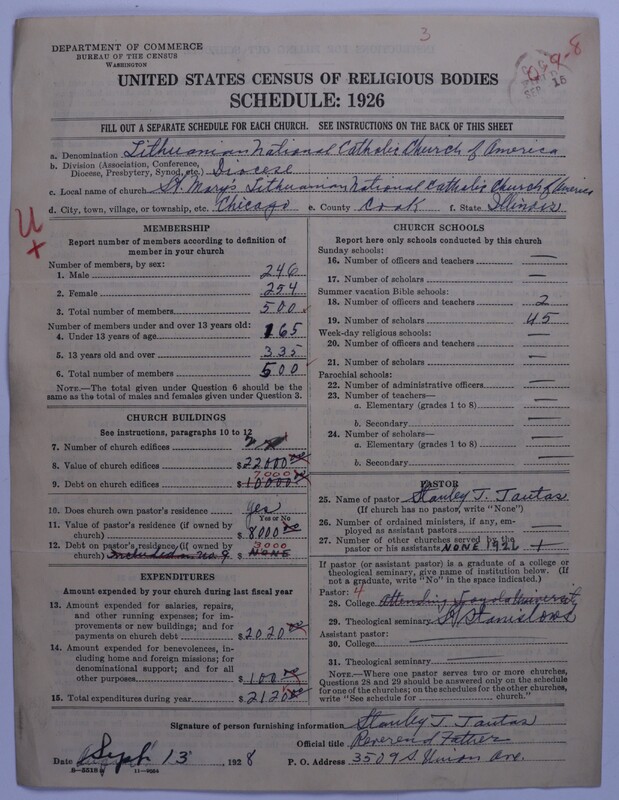 3
DEPARTMENT OF COMMERCE
BUREAU OF THE CENSUS
WASHINGTON
0-9-8
SEP 15
UNITED STATES CENSUS OF RELIGIOUS BODIES
SCHEDULE: 1926
FILL OUT A SEPARATE SCHEDULE FOR EACH CHURCH. SEE INSTRUCTIONS ON THE BACK OF THIS SHEET
a. Denomination Lithuanian National Catholic Church of America
b. Division (Association, Conference, Diocese, Presbytery, Synod, etc.) Diocese
c. Local name of church St. Mary's Lithuanian National Catholic Church of America
d. City, town, village, or township, etc. Chicago e. County Cook f. State Illinois
U
+
MEMBERSHIP
Report number of members according to definition of
member in your church
Number of members, by sex:
1. Male 246
2. Female 254
3. Total number of members 500
Number of members under and over 13 years old:
4. Under 13 years of age 165
5. 13 years old and over 335
6. Total number of members 500
NOTE.—The total given under Question 6 should be
same as the total of males and females given under Question 3.
CHURCH BUILDINGS
See instructions, paragraphs 10 to 12
7. Number of church edifices 1
8. Value of church edifices $22000 00
7000
9. Debt on church edifices $10000 00
10. Does church own pastor's residence? yes
Yes or No
11. Value of pastor's residence (if owned by
church) $8000 00
12. Debt on pastor's residence (if owned by 3000
church) Included in no. 9 $NONE
EXPENDITURES
Amount expended by your church during last fiscal year
13. Amount expended for salaries, repairs,
and other running expenses; for im-
provements or new buildings; and for
payments on church debt $2020 00
14. Amount expended for benevolences, in-
cluding home and foreign missions; for
denominational support; and for all
other purposes $100 00
15. Total expenditures during year $2120 00
CHURCH SCHOOLS
Report here only schools conducted by this church
Sunday schools:
16. Number of officers and teachers —
17. Number of scholars —
Summer vacation Bible schools:
18. Number of officers and teachers 2
19. Number of scholars 45
Week-day religious schools:
20. Number of officers and teachers —
21. Number of scholars —
Parochial schools:
22. Number of administrative officers —
23. Number of teachers—
a. Elementary (grades 1 to 8) —
b. Secondary —
24. Number of scholars—
a. Elementary (grades 1 to 8) —
b. Secondary —
PASTOR
25. Name of pastor Stanley J. Tautas
(If church has no pastor, write "None")
26. Number of ordained ministers, if any, em-
ployed as assistant pastors —
27. Number of other churches served by the
pastor or his assistants NONE 1922 1
If pastor (or assistant pastor) is a graduate of a college or
theological seminary, give name of institution below. (If
not a graduate, write "No" in the space indicated.)
Pastor: 4
28. College Attending Loyola University
29. Theological seminary St. Stanislows
Assistant pastor:
30. College
31. Theological seminary
NOTE.—Where one pastor serves two or more churches,
Questions 28 and 29 should be answered only on the schedule
for one of the churches; on the schedules for the other churches,
write "See schedule for church."
Signature of person furnishing information Stanley J. Tautas
Official title Reverend Father
Date Sept 13 1928 P. O. Address 3509 S. Union Ave.
8-5518 11-9064